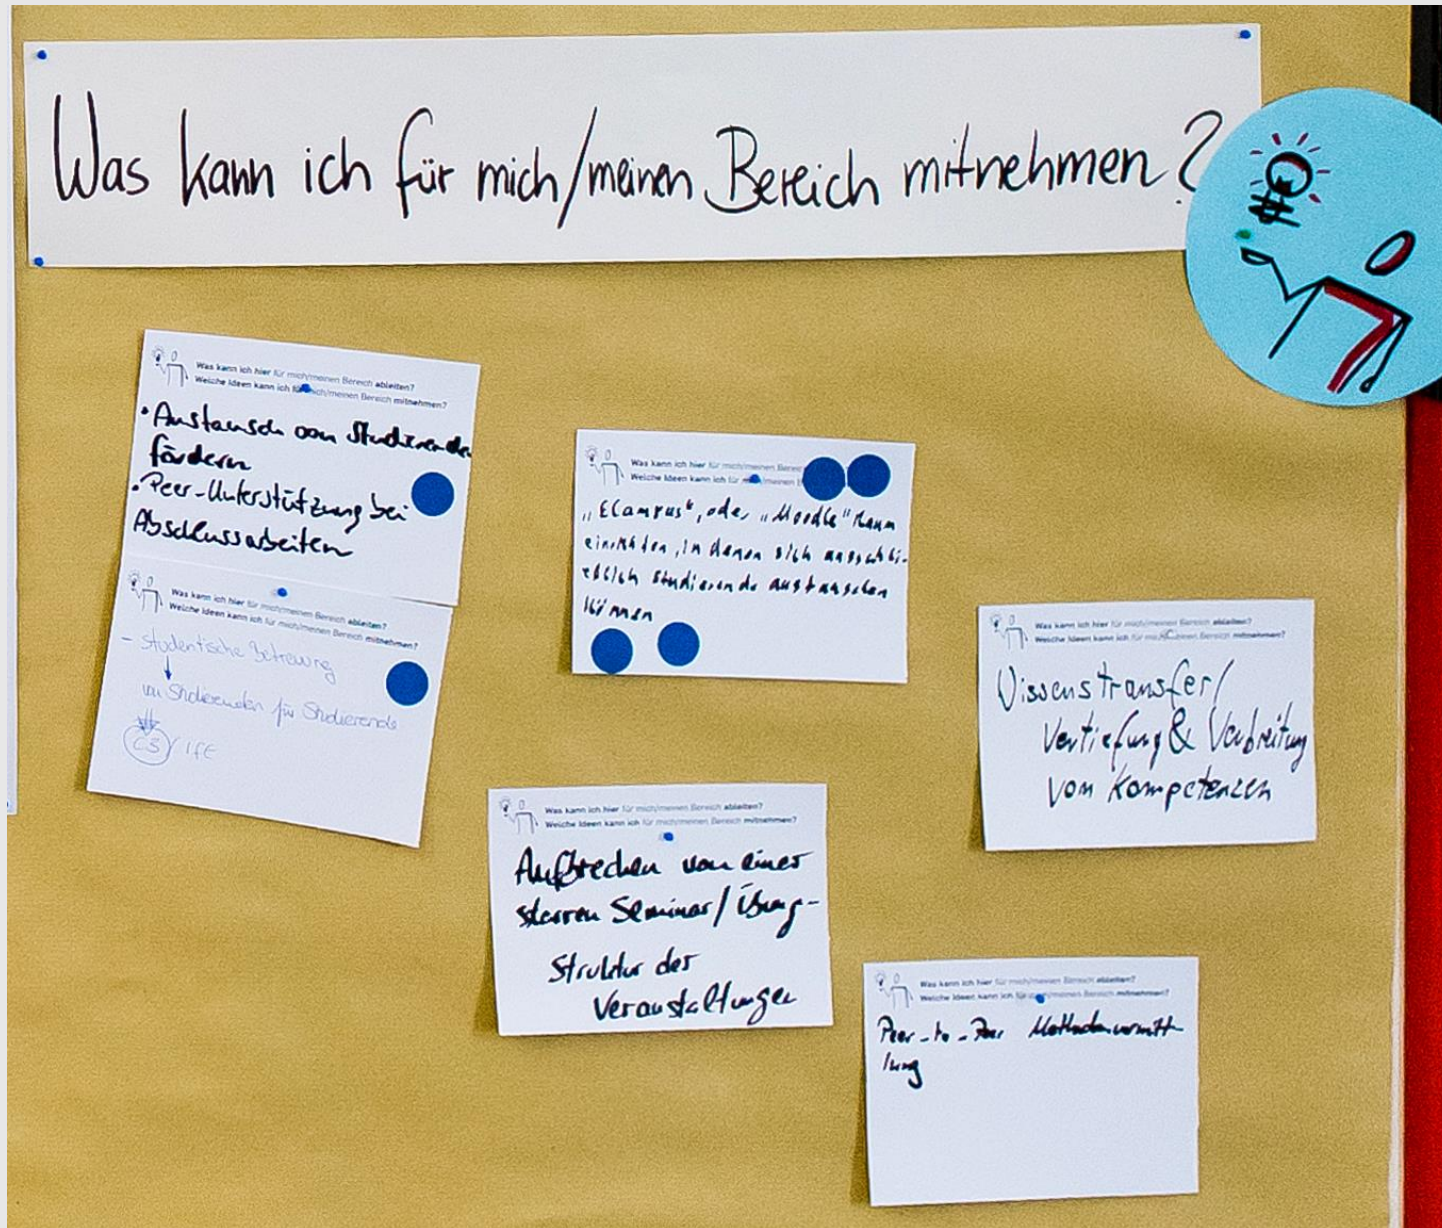 Was kann ich für mich/meinen Bereich mitnehmen?
Was kann ich hier für mich/meinen Bereich ableiten?
Welche Ideen kann ich für mich/meinen Bereich mitnehmen?
• Austausch von Studierenden
fördern
• Peer-Unterstützung bei
Abschlussarbeiten
Was kann ich hier für mich/meinen Bereich ableiten?
Welche Ideen kann ich für mich/meinen Bereich mitnehmen?
- studentische Betreuung
von Studierenden für Studierende
C3 / IfE
Was kann ich hier für mich/meinen Bereich
Welche Ideen kann ich für mich/meinen B
"ECampus", oder "Moodle" Raum
einrichten, in denen sich ausschli-
eßlich Studierende austauschen
können
Was kann ich hier für mich/meinen Bereich ableiten?
Welche Ideen kann ich für mich/meinen Bereich mitnehmen?
Wissenstransfer/
Vertiefung & Verbreitung
von Kompetenzen
Was kann ich hier für mich/meinen Bereich ableiten?
Welche Ideen kann ich für mich/meinen Bereich mitnehmen?
Aufbrechen von einer
starren Seminar/Übung-
Struktur der
Veranstaltungen
Was kann ich hier für mich/meinen Bereich ableiten?
Welche Ideen kann ich für mich/meinen Bereich mitnehmen?
Peer-to-Peer Methodenvermitt-
lung